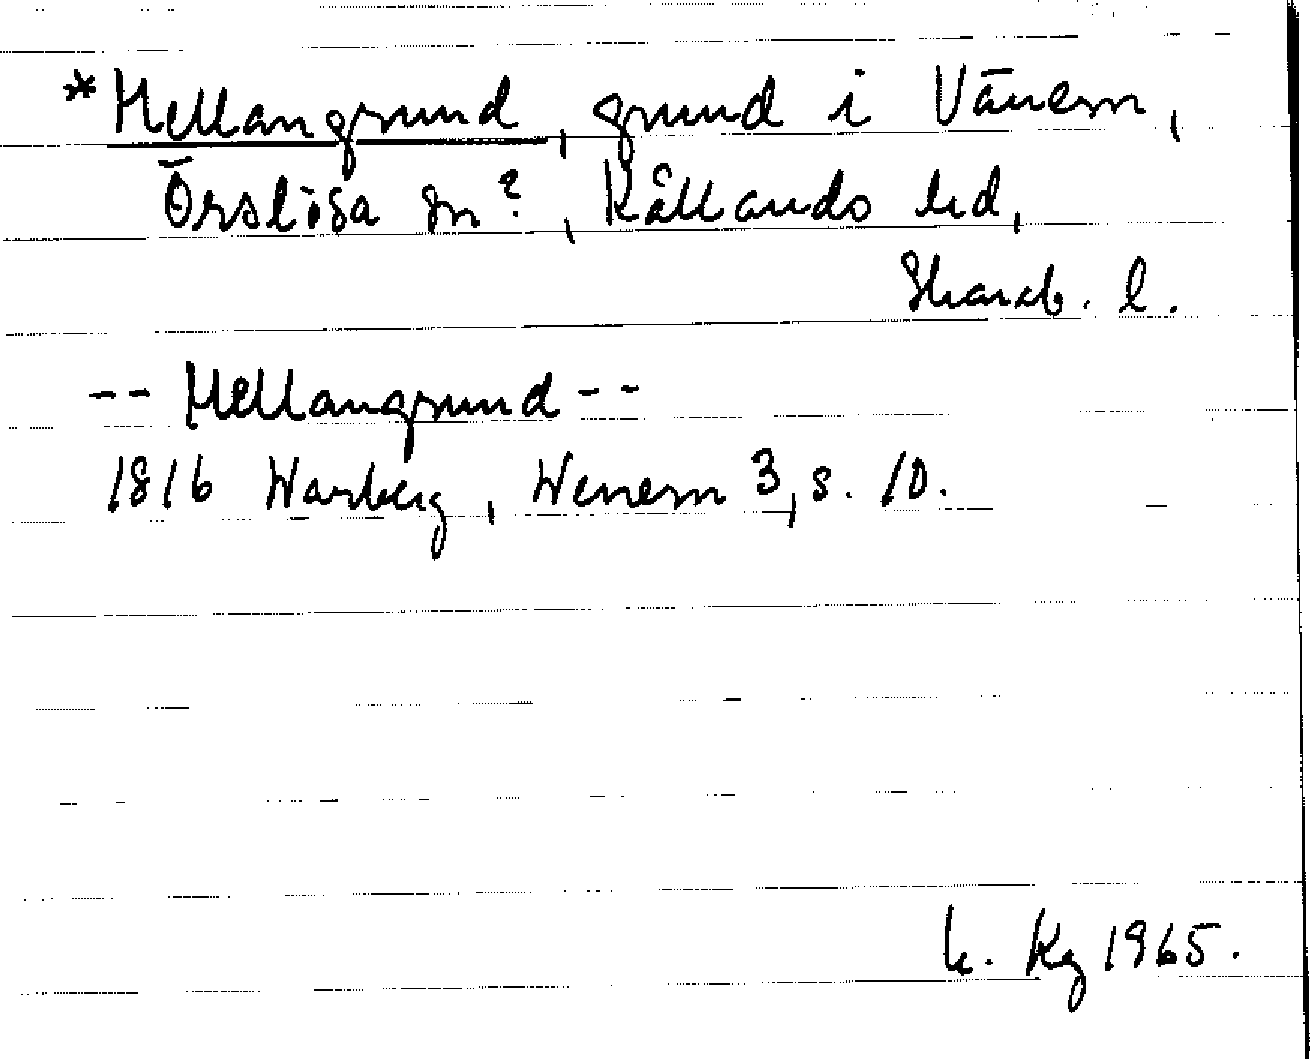 *Mellangrund, grund i Vänern,
Örslösa sn?, Kållands hd,
Skarab. l.
-- Mellangrund --
1816 Warberg, Wenern 3, s. 10.
Kg 1965.